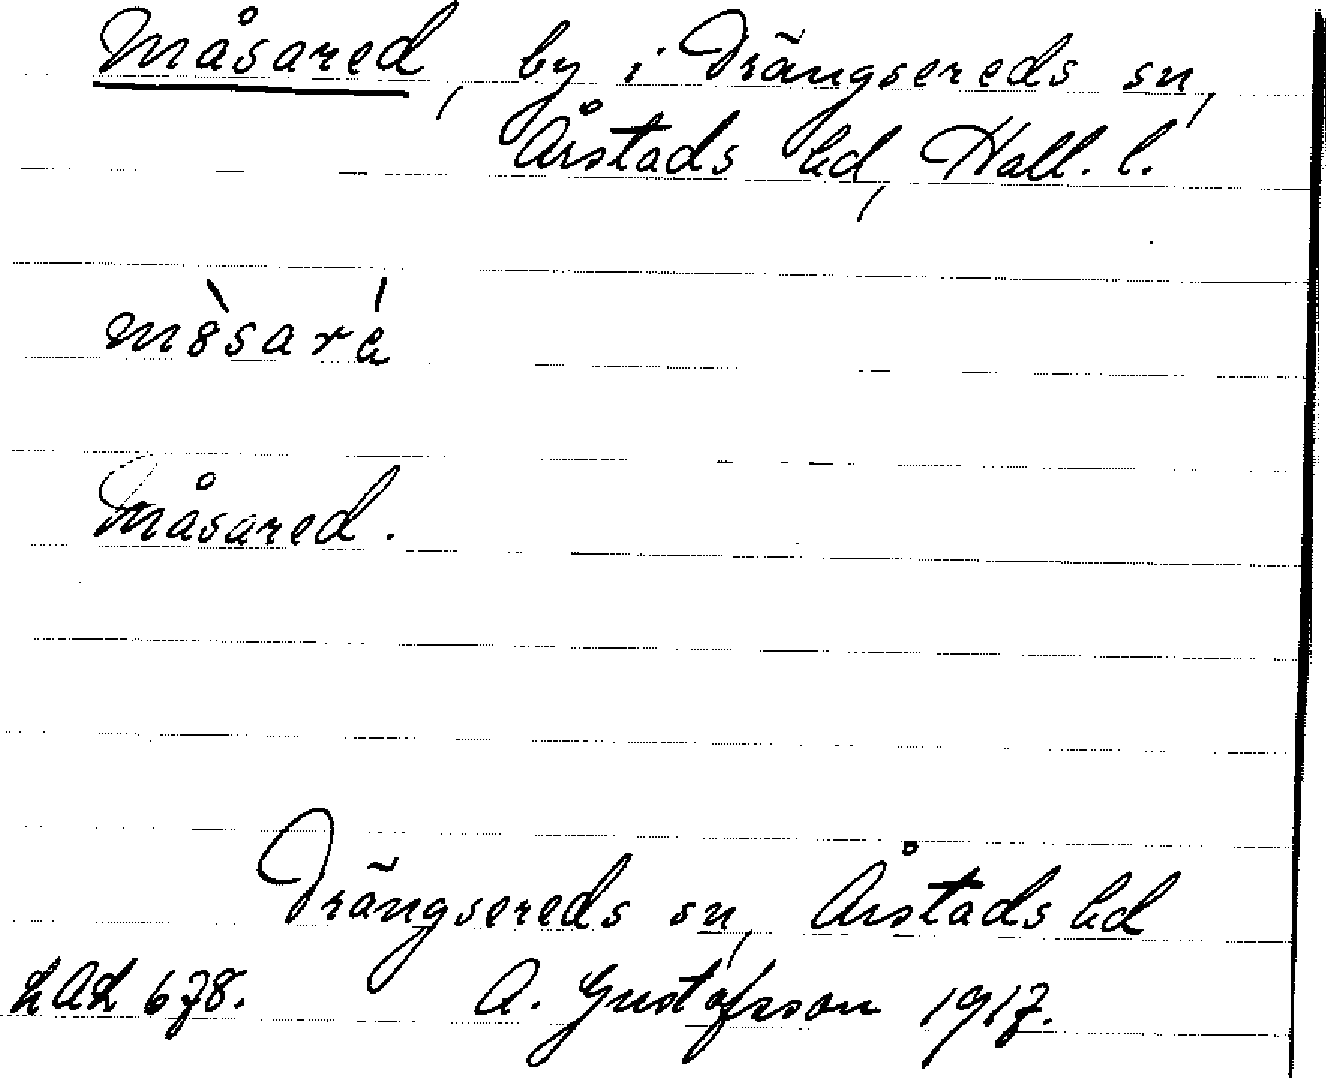 Måsared, by i Drängsereds sn,
Årstads hd, Hall. l.
Måsared.
Drängsereds sn, Årstads hd
LAL 678. A. Gustafsson 1917.